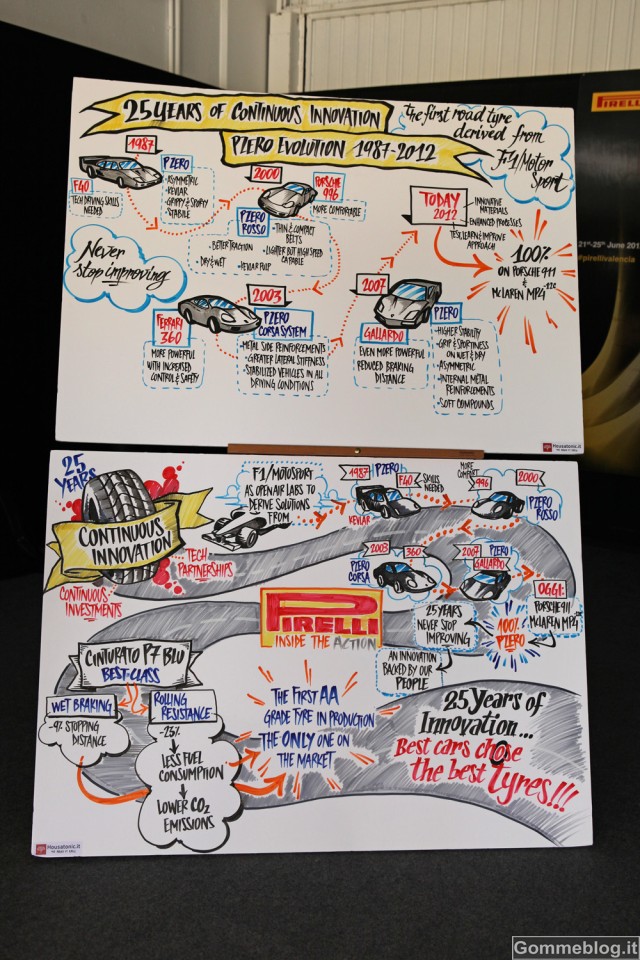 25 YEARS OF CONTINUOUS INNOVATION
PZERO EVOLUTION 1987-2012
The first road tyre
derived from
F1/Motor
Sport
1987
F40
TECH DRIVING SKILLS
NEEDED
PZERO
- ASYMMETRIC
- KEVLAR
- GRIPPY & SPORTY
- STABILE
2000
PORSCHE
996
MORE COMFORTABLE
PZERO
ROSSO
- THIN & COMPACT
BELTS
- BETTER TRACTION
- LIGHTER BUT HIGH SPEED
CAPABLE
- DRY & WET
- KEVLAR PULP
TODAY
2012
- INNOVATIVE
MATERIALS
- ENHANCED PROCESSES
- TEST, LEARN & IMPROVE
APPROACH
100%
ON PORSCHE 911
& MCLAREN MPG 12C
Never
stop improving
FERRARI
360
MORE POWERFUL
WITH INCREASED
CONTROL & SAFETY
2003
PZERO
CORSA SYSTEM
- METAL SIDE REINFORCEMENTS
- GREATER LATERAL STIFFNESS
- STABILIZED VEHICLES IN ALL
DRIVING CONDITIONS
2007
GALLARDO
EVEN MORE POWERFUL
REDUCED BRAKING
DISTANCE
PZERO
- HIGHER STABILITY
- GRIP & SPORTINESS
ON WET & DRY
- ASYMMETRIC
- INTERNAL METAL
REINFORCEMENTS
- SOFT COMPOUNDS
Housatonic.it
PIRELLI
21st-25th June 201
#pirellivalencia
25
YEARS
CONTINUOUS
INNOVATION
TECH
PARTNERSHIPS
CONTINUOUS
INVESTMENTS
F1/MOTOSPORT
AS OPEN AIR LABS TO
DERIVE SOLUTIONS
FROM
1987
PZERO
F40
SKILLS
NEEDED
KEVLAR
MORE
COMPACT
996
2000
PZERO
ROSSO
2003
360
PZERO
CORSA
2007
PZERO
GALLARDO
OGGI:
PORSCHE 911
MCLAREN MPG 12C
100%
PZERO
25 YEARS
NEVER STOP
IMPROVING
AN INNOVATION
BACKED BY OUR
PEOPLE
PIRELLI
INSIDE THE ACTION
CINTURATO P7 BLU
BEST-CLASS
WET BRAKING
-9% STOPPING
DISTANCE
ROLLING
RESISTANCE
-23%
LESS FUEL
CONSUMPTION
LOWER CO2
EMISSIONS
THE FIRST AA
GRADE TYRE IN PRODUCTION
THE ONLY ONE ON
THE MARKET
25 Years of
Innovation...
Best cars chose
the best tyres!!!
Housatonic.it
Gommeblog.it